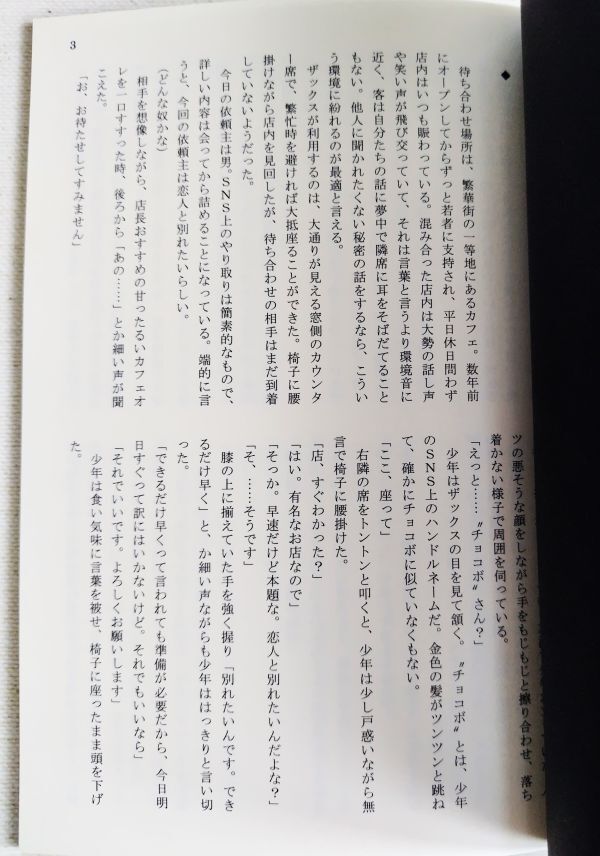 3
◆
待ち合わせ場所は、繁華街の一等地にあるカフェ。数年前
にオープンしてからずっと若者に支持され、平日休日問わず
店内はいつも賑わっている。混み合った店内は大勢の話し声
や笑い声が飛び交っていて、それは言葉と言うより環境音に
近く、客は自分たちの話に夢中で隣席に耳をそばだてること
もない。他人に聞かれたくない秘密の話をするなら、こうい
う環境に紛れるのが最適と言える。
ザックスが利用するのは、大通りが見える窓側のカウンタ
ー席で、繁忙時を避ければ大抵座ることができた。椅子に腰
掛けながら店内を見回したが、待ち合わせの相手はまだ到着
していないようだった。
今日の依頼主は男。SNS上のやり取りは簡素的なもので、
詳しい内容は会ってから詰めることになっている。端的に言
うと、今回の依頼主は恋人と別れたいらしい。
(どんな奴かな)
相手を想像しながら、店長おすすめの甘ったるいカフェオ
レを一口すすった時、後ろから「あの……」とか細い声が聞
こえた。
「お、お待たせしてすみません」
ツの悪そうな顔をしながら手をもじもじと擦り合わせ、落ち
着かない様子で周囲を伺っている。
「えっと……〝チョコボ〟さん?」
少年はザックスの目を見て頷く。〝チョコボ〟とは、少年
のSNS上のハンドルネームだ。金色の髪がツンツンと跳ね
て、確かにチョコボに似ていなくもない。
「ここ、座って」
右隣の席をトントンと叩くと、少年は少し戸惑いながら無
言で椅子に腰掛けた。
「店、すぐわかった?」
「はい。有名なお店なので」
「そっか。早速だけど本題な。恋人と別れたいんだよな?」
「そ、……そうです」
膝の上に揃えていた手を強く握り「別れたいんです。でき
るだけ早く」と、か細い声ながらも少年ははっきりと言い切
った。
「できるだけ早くって言われても準備が必要だから、今日明
日すぐって訳にはいかないけど。それでもいいなら」
「それでいいです。よろしくお願いします」
少年は食い気味に言葉を被せ、椅子に座ったまま頭を下げ
た。